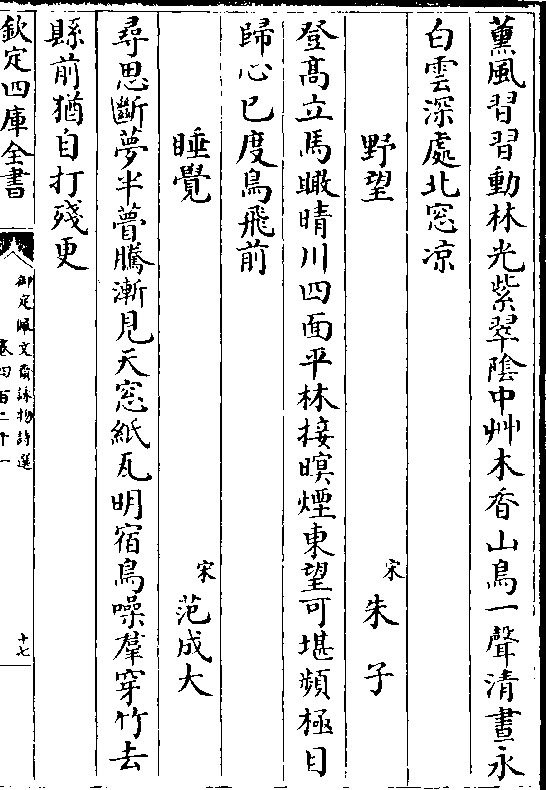 薫風習習動林光紫翠陰中艸木香山鳥一聲清晝永
白雲深處北窓凉
野望
宋 朱子
登髙立馬瞰晴川四面平林接暝煙東望可堪頻極目
歸心已度鳥飛前
睡覺
宋 范成大
尋思斷夢半瞢騰漸見天窓紙瓦明宿鳥噪羣穿竹去
縣前猶自打殘更
欽定四庫全書
御定佩文齋詠物詩選
卷四百二十一
十七